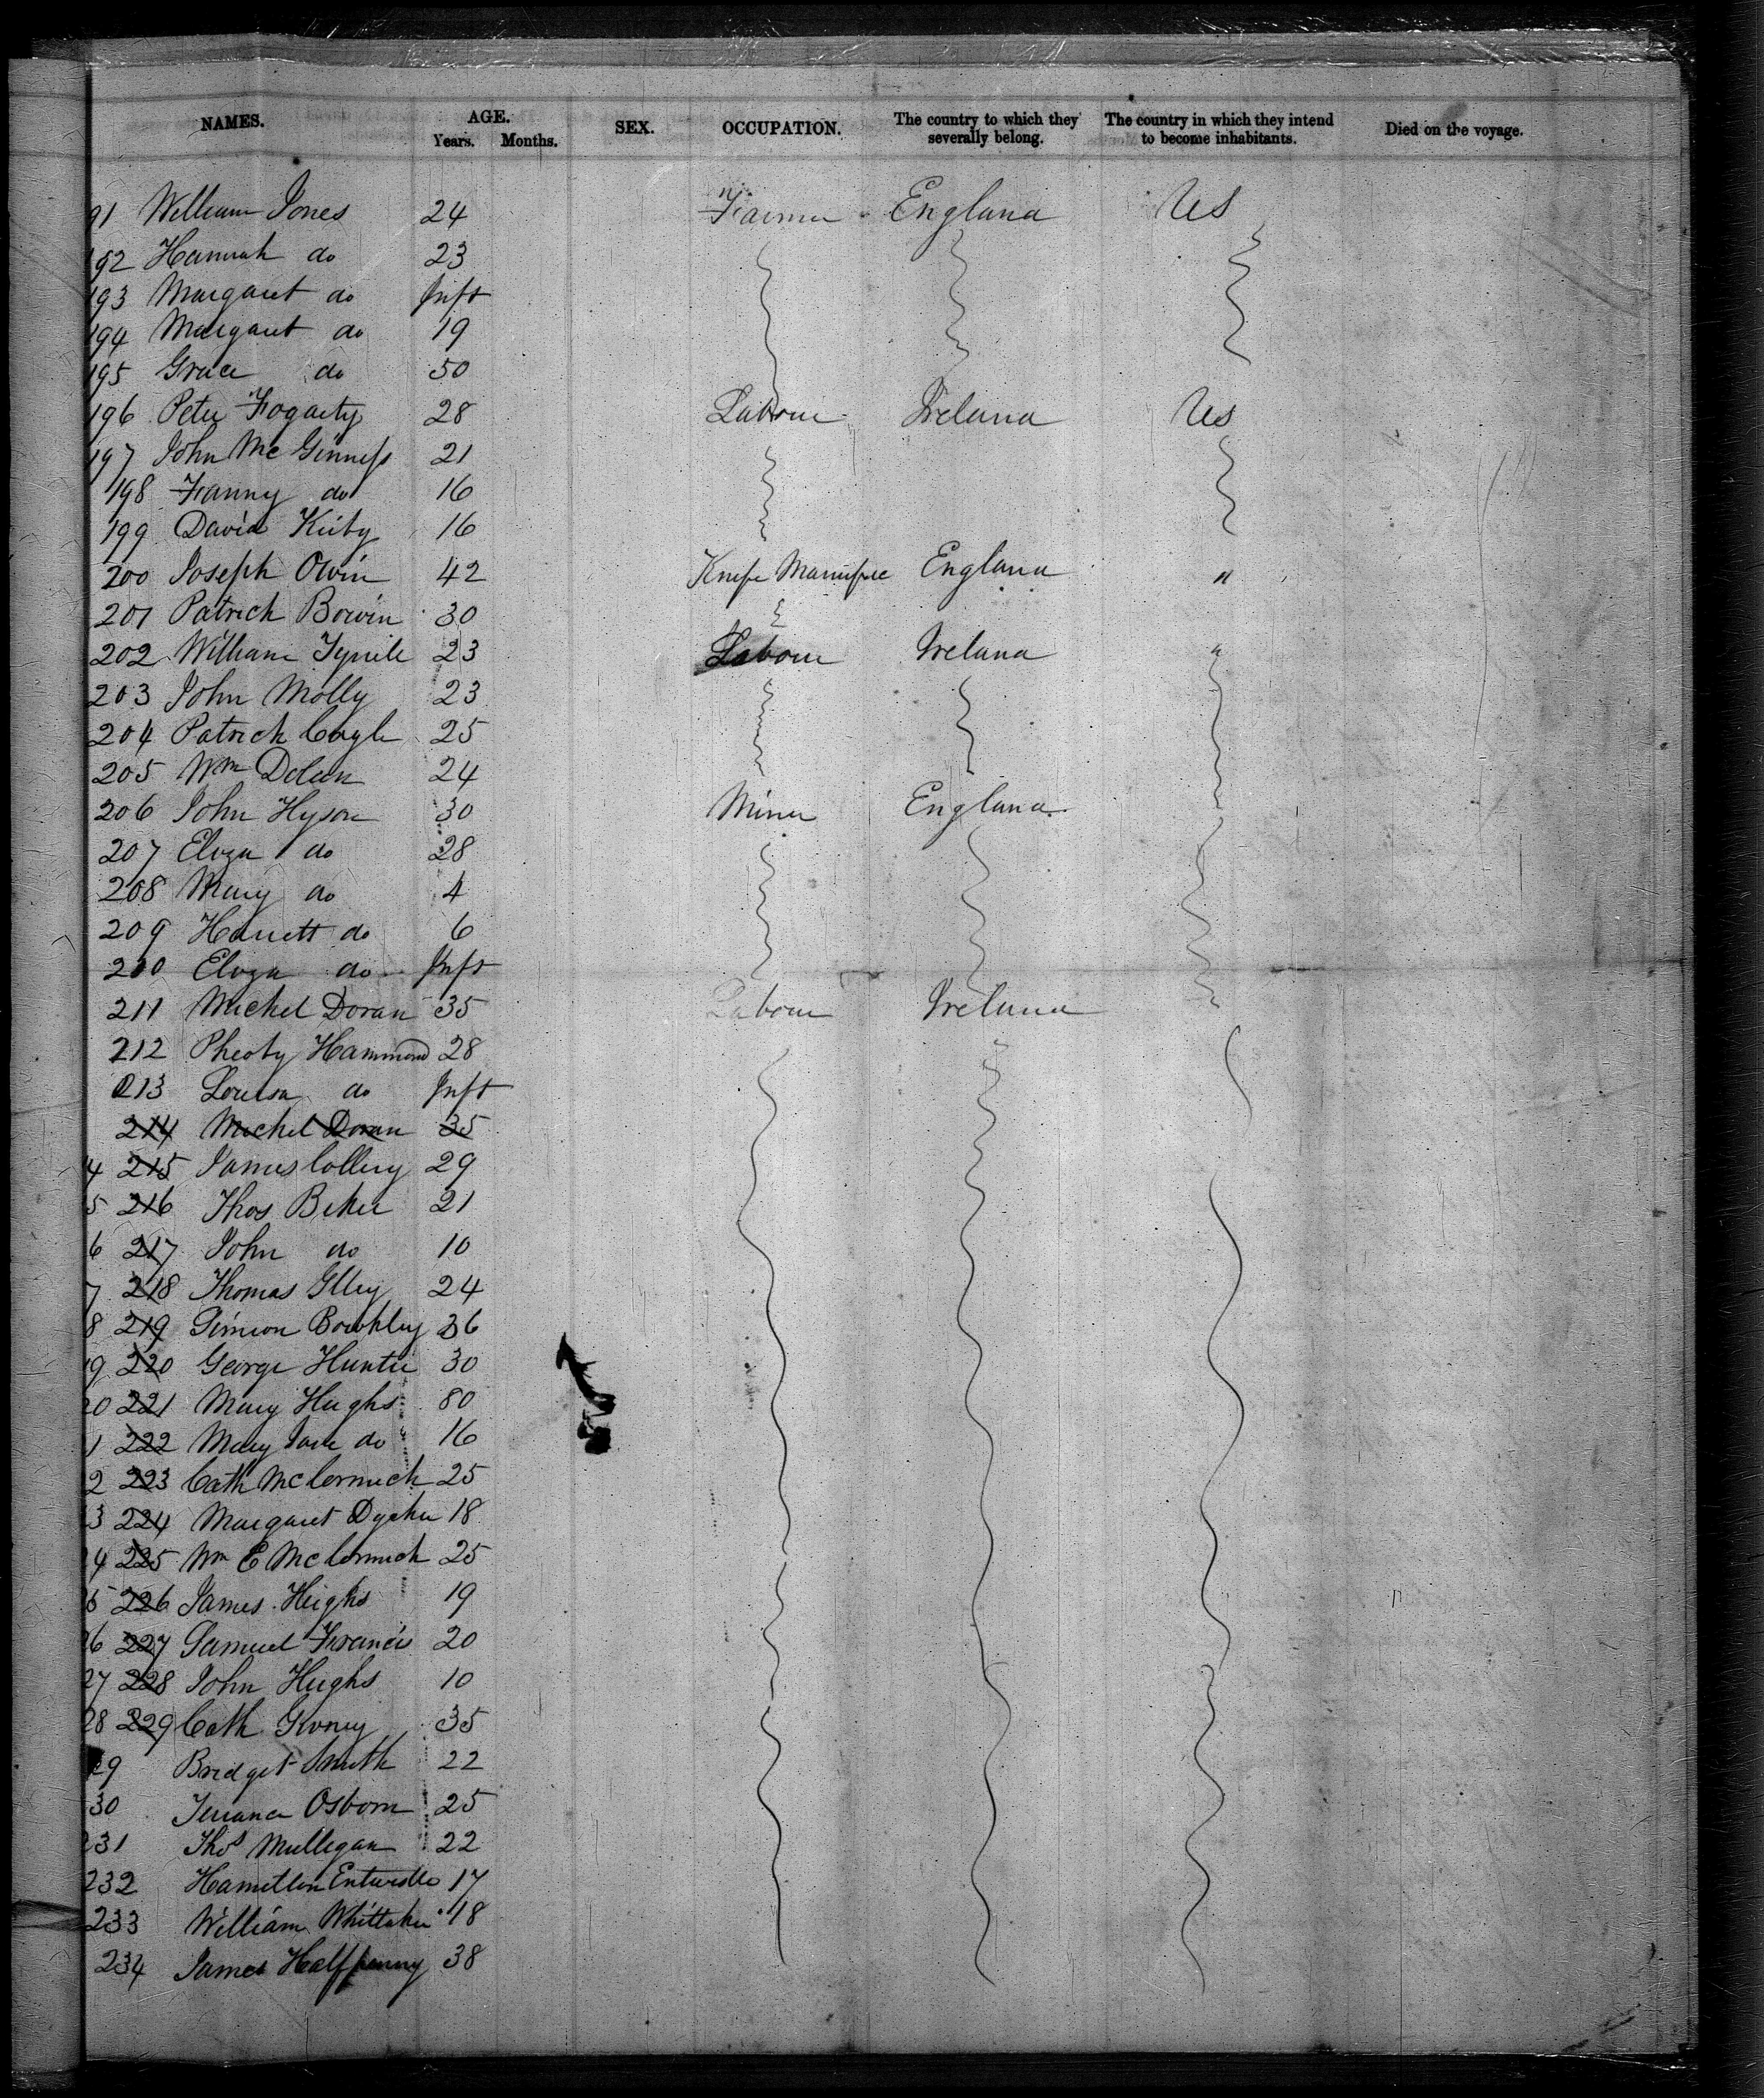 NAMES. AGE. Years. Months. SEX. OCCUPATION. The country to which they severally belong. The country in which they intend to become inhabitants. Died on the voyage.
91 William Jones 24 Farmer England US
192 Hannah do 23
193 Margaret do Inft
194 Margaret do 19
195 Grace do 50
196 Peter Fogarty 28 Labour Ireland US
197 John McGinness 21
198 Fanny do 16
199 David Kirby 16
200 Joseph Olvin 42 Knife England "
201 Patrick Bowin 30
202 William 23 Labour Ireland "
203 John Molly 23
204 Patrick 25
205 Wm Dolan 24
206 John Hyson 30 Miner England
207 Eliza do 28
208 Mary do 4
209 Harriett do 6
210 Eliza do Inft
211 Michel Doran 35 Labour Ireland
212 Pheoby Hammond 28
213 Louisa do Inft
214 Michel Doran 35
4 215 James Collery 29
5 216 Thos Beker 21
6 217 John do 10
7 218 Thomas 24
8 219 Simion 36
19 220 George Hunter 30
20 221 Mary Hughs 80
1 222 Mary Jane do 16
2 223 Cath McCormick 25
3 224 Margaret 18
4 225 Wm E McCormick 25
5 226 James Hughs 19
26 227 Samuel Francis 20
27 228 John Hughs 10
28 229 Cath 35
29 Bridget Smith 22
30 Osborn 25
231 Thos Mulligan 22
232 Hamilton Entwistle 17
233 William Whittaker 18
234 James Halfpenny 38